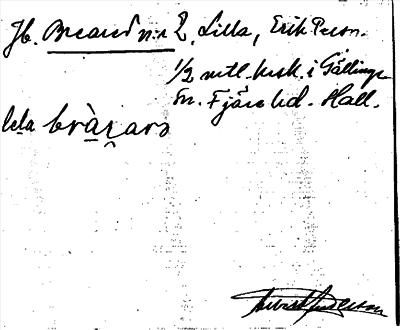 Jb. Breared nr 2, Lilla, Erik Person.
1/2 mtl. krsk. i Gällinge
sn. Fjäre hd. Hall.
lela bràrarə